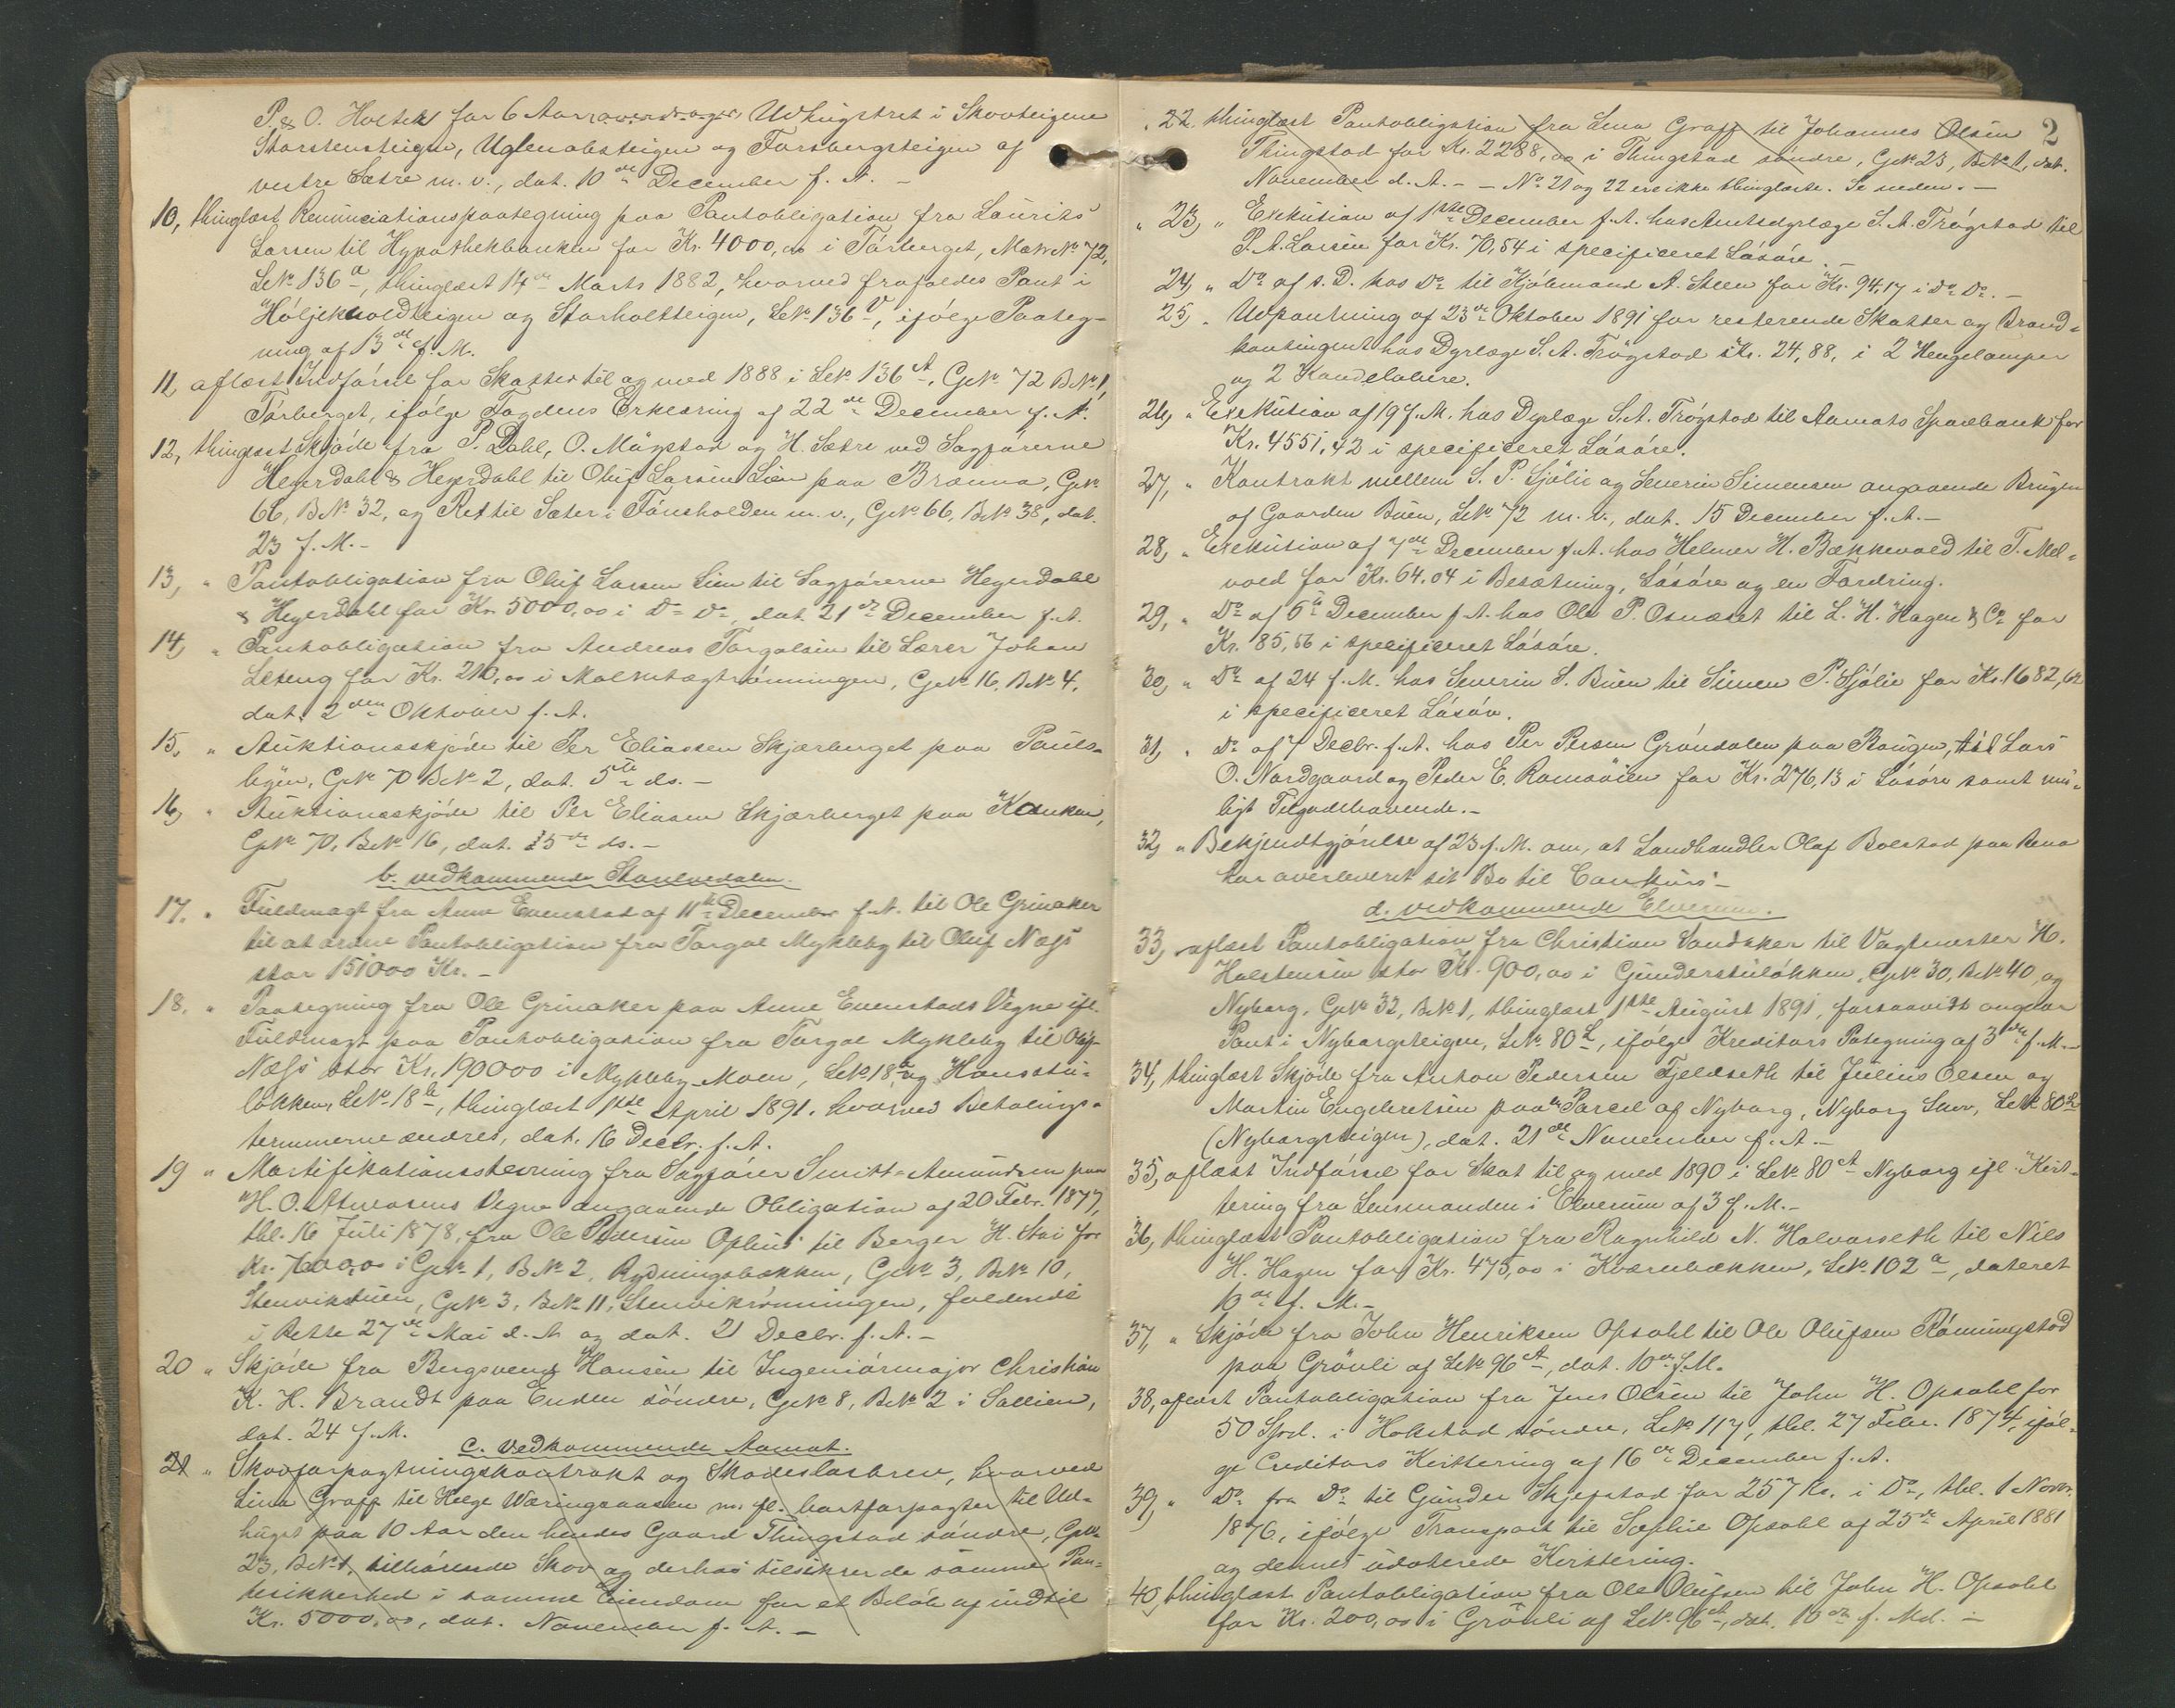 P. & O. Holtet for 6 Aar overdrager Udhugstret i Skovteigene
Storstensteigen, Uglenabsteigen og Forsbergsteigen af
vestre Sætre m. v., dat. 10de December f. A. -
10, thinglæst Renunciationspaategning paa Pantobligation fra Laurits
Larsen til Hypothekbanken for Kr. 4000,00 i Tørberget, Matr. No 72,
LNo. 136a, thinglæst 14de Marts 1882, hvorved frafaldes Pant i
Høljekvoldteigen og Storholtteigen, LNo. 136 , ifølge Paateg-
ning af 13de f. M.
11, aflæst Indførsel for Skatter til og med 1888 i LNo. 136A, GNo. 72 BNo. 1,
Tørberget, ifølge Fogdens Erklæring af 22de December f. A.
12, thinglæst Skjøde fra P. Dahl, O. Møgstad og H. Sætre ved Sagførerne
Heyerdahl & Heyerdahl til Oluf Larsen Lien paa Brænna, GNo.
66, BNo. 32, og Ret til Sæter i Fønsholden m. v., GNo. 66, BNo. 38, dat.
23 f. M. -
13, " Pantobligation fra Oluf Larsen Lien til Sagførerne Heyerdahl
& Heyerdahl for Kr. 5000,00 i Do Do, dat. 21de December f. A.
14, " Pantobligation fra Andreas Torgalsen til Lærer Johan
Løteng for Kr. 210,00 i , GNo. 16, BNo. 4,
dat. 2den Oktober f. A.
15, " Auktionsskjøde til Per Eliassen Skjærberget paa Pouls-
byen, GNo. 70 BNo. 2, dat. 5te ds. -
16, " Auktionsskjøde til Per Eliassen Skjærberget paa Kanken,
GNo. 70, BNo. 16, dat. 5te ds. -
b. vedkommende Storelvedalen.
17. " Fuldmagt fra Anne Evenstad af 11te December f. A. til Ole Grinaker
til at ordne Pantobligation fra Torgal Mykleby til Oluf Næss
stor 151000 Kr. -
18. " Paategning fra Ole Grinaker paa Anne Evenstads Vegne ifl.
Fuldmagt paa Pantobligation fra Torgal Mykleby til Oluf
Næss stor Kr. 190000 i Mykleby-Moen, LNo. 18a og Hansstu-
løkken, LNo. 18b, thinglæst 1ste April 1891, hvorved Betalings-
terminerne ændres, dat. 16 Decbr. f. A.
19 " Mortifikationsstevning fra Sagfører Smitt-Amundsen paa
H. O. Vegne angaaende Obligation af 20 Febr. 1877,
thl. 16 Juli 1878, fra Ole Pedersen Ophus til Berger H. Stai for
Kr. 7600,00 i GNo. 1, BNo. 2, Rydningsbækken, GNo. 3, BNo. 10,
Stenvikstuen, GNo. 3, BNo. 11, Stenvikrønningen, faldende
i Rette 27de Mai d. A. og dat. 21 Decbr. f. A. -
20 " Skjøde fra Bergsvend Hansen til Ingeniørmajor Christian
K. H. Brandt paa Enden søndre, GNo. 8, BNo. 2 i Sollien,
dat. 24 f. M.
c. vedkommende Aamot.
21 " Skovforpagtningskontrakt og Skadesløsbrev, hvorved
Lina Graff til Helge Wæringsaasen m. fl. bortforpagter til Ud-
huget paa 10 Aar den hendes Gaard Thingstad søndre, GNo.
23, BNo. 1, tilhørende Skov og derhos tilsikrende samme Pan-
tesikkerhed i samme Eiendom for et Beløb af indtil
Kr. 5000,00, dat. November f. A. -
2
22. thinglæst Pantobligation fra Lena Graff til Johannes Olsen
Thingstad for Kr. 2288,00 i Thingstad søndre, GNo. 23, BNo. 1, dat.
November d. A. - - No 21 og 22 ere ikke thinglæste. Se neden. -
" 23, " Exekution af 1ste December f. A. hos Amtsdyrlæge S. A. Trøgstad til
P. A. Larsen for Kr. 70,54 i specificeret Løsøre. -
24, " Do af s. D. hos Do til Kjøbmand A. Steen for Kr. 94,17 i Do Do. -
25, " Udpantning af 23de Oktober 1891 for resterende Skatter og Brand-
kontingent hos Dyrlæge S. A. Trøgstad Kr. 24,88, i 2 Hengelamper
og 2 Kandelabere.
26, " Exekution af 19 f. M. hos Dyrlæge S. A. Trøgstad til Aamots Sparebank for
Kr. 4551,42 i specificeret Løsøre.
27, " Kontrakt mellem S. P. Sjølie og Severin Simensen angaaende Brugen
af Gaarden Buen, LNo. 72 m. v., dat. 15 December f. A. -
28, " Exekution af 7de December f. A. hos Helmer H. Bækkevold til T. Mel-
vold for Kr. 64.04 i Besætning, Løsøre og en Fordring.
29, " Do af 5te December f. A. hos Ole P. Osnæset til L. H. Hagen & Co for
Kr. 85,56 i specificeret Løsøre.
30, " Do af 24 f. M. hos Severin S. Buen til Simen P. Sjølie for Kr. 1682,62
i specificeret Løsøre.
31, " Do af 4 Decbr. f. A. hos Per Persen Grøndalen paa Haugen, til Lars
O. Nordgaard og Peder E. Ramsøien for Kr. 276,13 i Løsøre samt mu-
ligt Tilgodehavende. -
32, " Bekjendtgjørelse af 23 f. M. om, at Landhandler Olaf Bolstad paa Rena
har overleveret sit Bo til Concurs -
d. vedkommende Elverum.
33, aflæst Pantobligation fra Christian Sandaker til Vagtmester H.
Halstensen stor Kr. 900,00 i Gunderstuløkken, GNo. 30, BNo. 40, og
Nyborg, GNo. 32, BNo. 1, thinglæst 1ste August 1891, forsaavidt angaar
Pant i Nyborgsteigen, LNo. 80L, ifølge Kreditors Pategning af 3de f. M. -
34, thinglæst Skjøde fra Anton Pedersen Fjeldseth til Julius Olsen og
Martin Engebretsen paa Parcel af Nyborg, Nyborg , LNo. 80L
(Nyborgsteigen), dat. 21de November f. A. -
35, aflæst Indførsel for Skat til og med 1890 i LNo. 80A Nyborg ifl. Kvit-
tering fra Lensmanden i Elverum af 3 f. M. -
36, thinglæst Pantobligation fra Ragnhild N. Halvorseth til Nils
H. Hagen for Kr. 475,00 i Kværnbækken, LNo. 102a, dateret
10de f. M. -
37, " Skjøde fra John Henriksen Opsahl til Ole Olufsen Rønningstad
paa Grønli af LNo. 96A, dat. 10de f. M.
38, aflæst Pantobligation fra Jens Olsen til John H. Opsahl for
50 Spd. i Hokstad søndre, LNo. 117, thl. 27 Febr. 1874, iføl-
ge Creditors Kvittering af 16de December f. A.
39, " Do fra Do til Gunder Skjefstad for 257 Kr. i Do, thl. 1 Novbr.
1876, ifølge Transport til Sophie Opsahl af 25de April 1881
og dennes udaterede Kvittering.
40, thinglæst Pantobligation fra Ole Olufsen til John H. Opsahl
for Kr. 200,00 i Grønli af LNo. 96A, dat. 10de f. Md. -